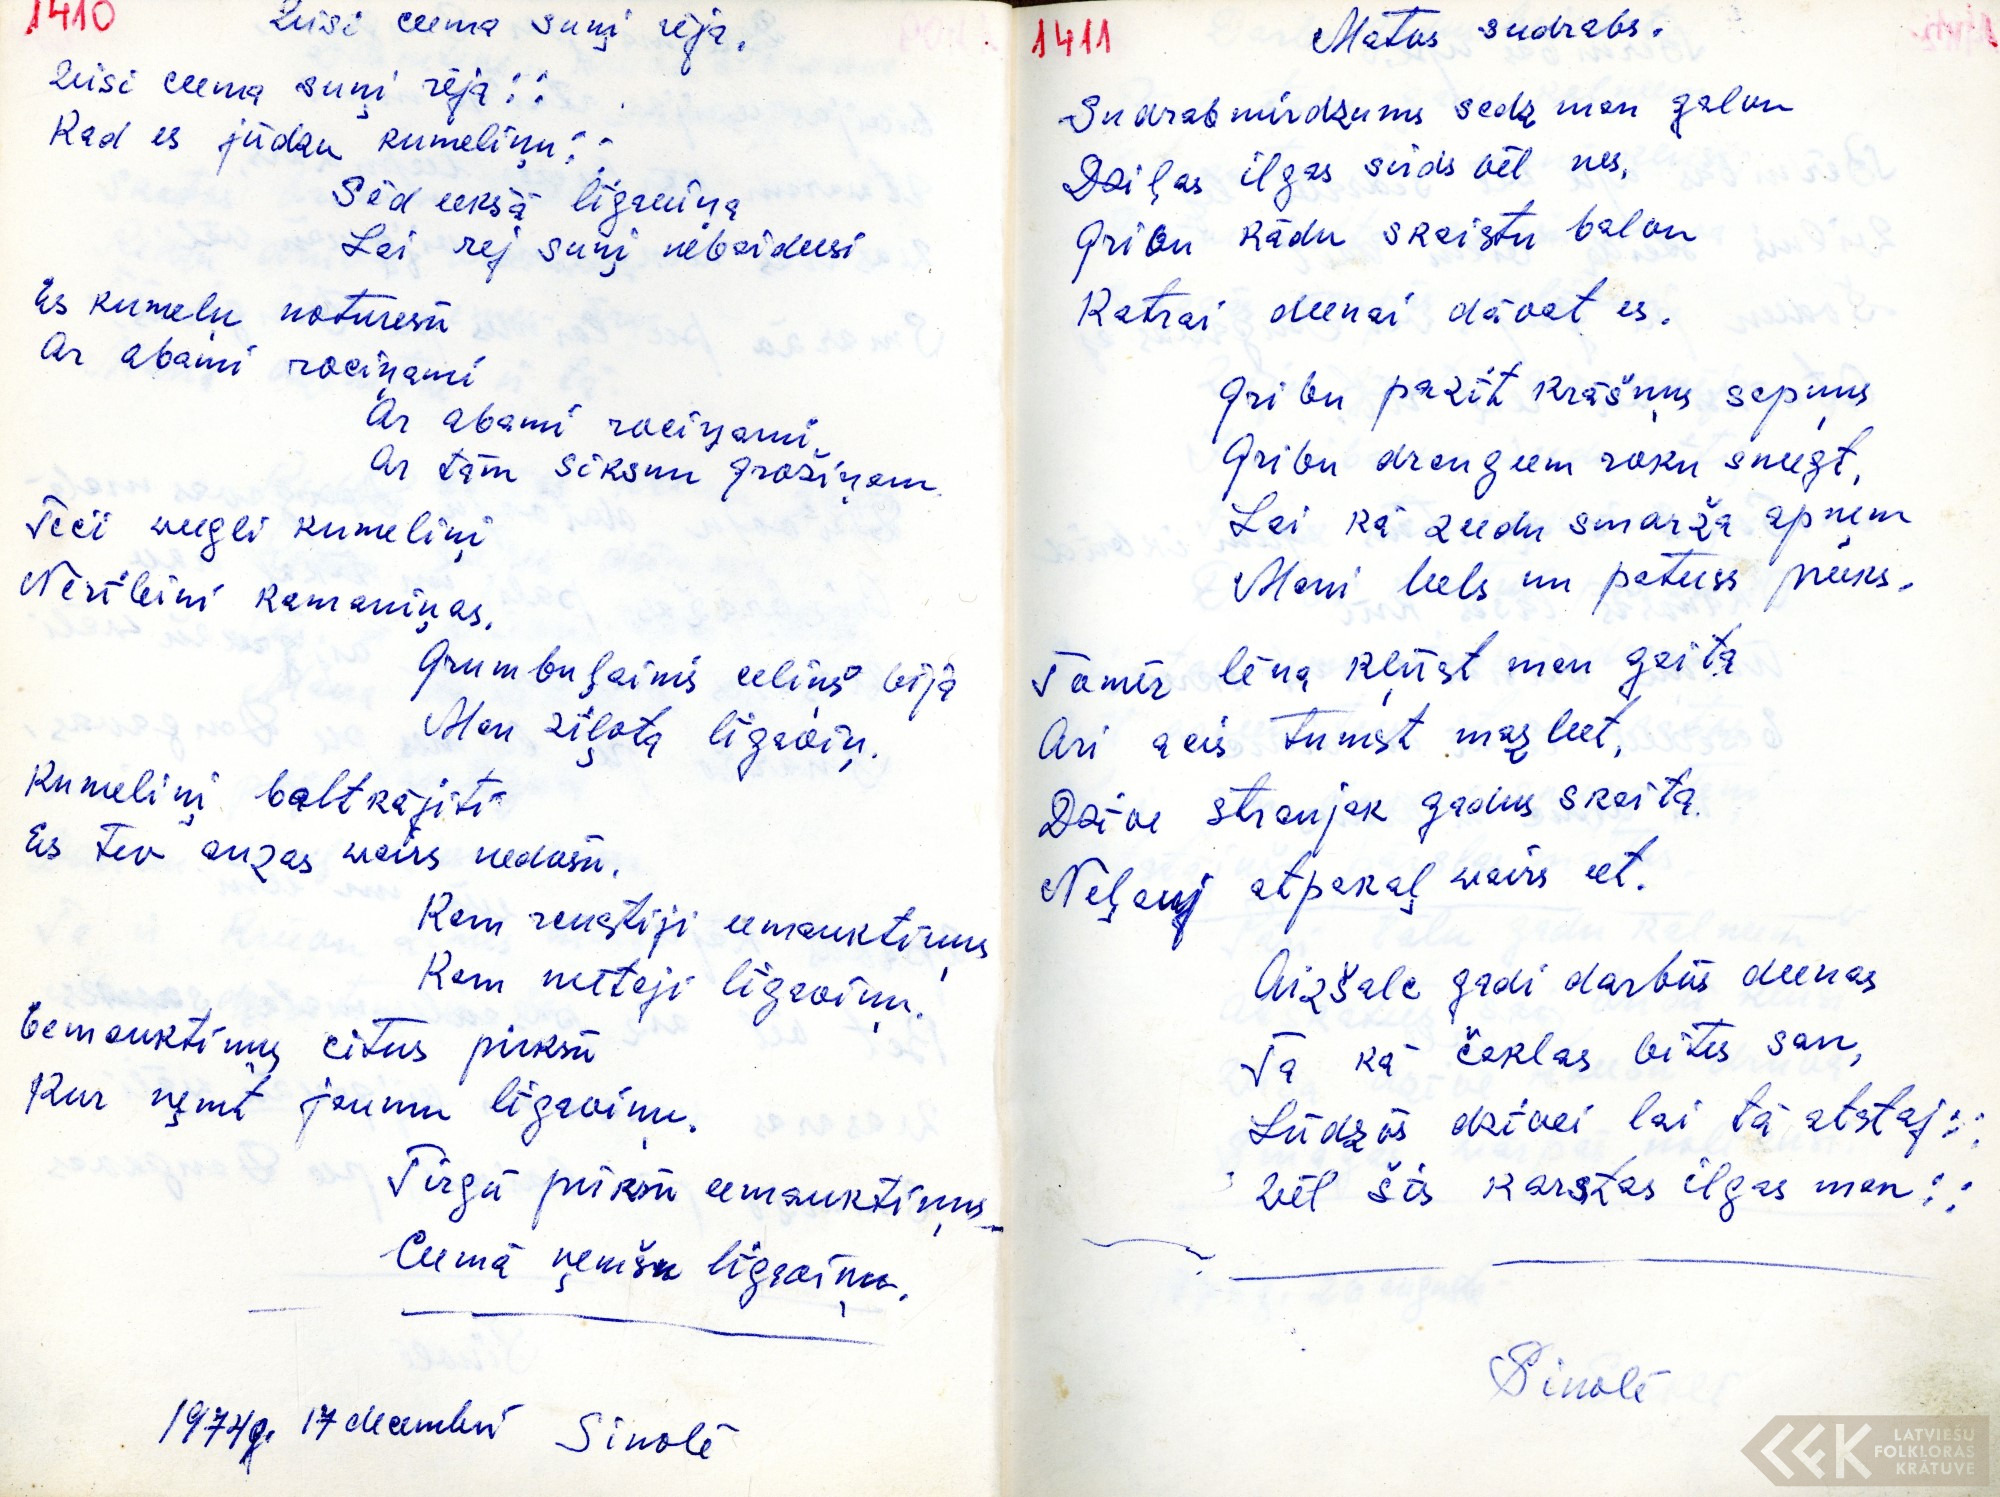 1410
Visi ceema suņi rēja.
Visi ceema suņi rēja : :
Kad es jūdzu kumeliņu : :
Sēd eekšā līgaviņa
Lai rej suņi nebaideesi
Es kumeļu noturešu
Ar abami rociņami
Ar abami rociņami.
Ar tām siksnu grožiņam
Teci weegli kumeliņi
Neribini kamaniņas.
Grumbuļainis celiņš bija
Man ziļota līgaviņ.
Kumeliņi baltkājiti
Es Tev auzas wairs nedošu.
Kam raustiji eemauktiņus
Kam metēji līgaviņu.
Eemauktiņus citus pirkšu
Kur ņemt jaunu līgaviņu.
Tirgū pirkšu eemauktiņus
Ceemā ņemšu līgaviņu.
1974g. 17 decembri Sinolē
1411
Matos sudrabs.
Sudrabmirdzums sedz man galvu
Dziļas ilgas sirds vēl nes.
Gribu kādu skaistu balvu
Katrai deenai dāvat es.
Gribu pazīt krāšņus sapņus
Gribu draugeem roku sneegt,
Lai kā zeedu smarža apņem
Mani leels un patees preeks.
Tomēr lēna kļūst man gaita
Ari acis tumst mazleet,
Dzīve straujak gadus skaita.
Neļauj atpakaļ wairs eet.
Aizšalc gadi darbīs deenas
Tā kā čaklas bites san,
Lūdzos dzīvei lai tā atstaj : :
Vēl šīs karstas ilgas man : :
Sinolē
LATVIEŠU
FOLKLORAS
KRĀTUVE